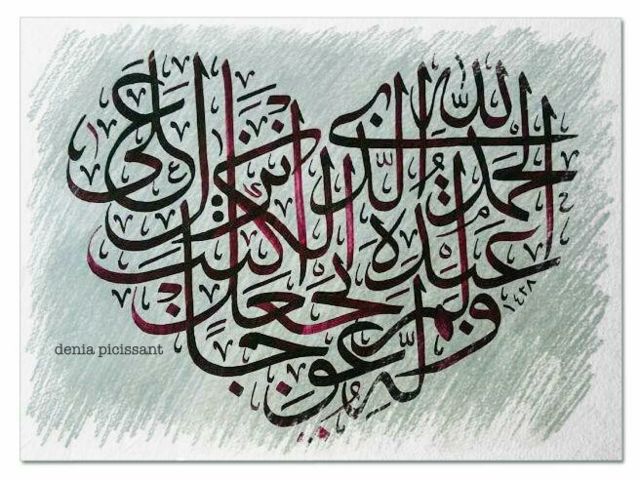 الحمد لله الذي أنزل على
عبده الكتٰب
ولم يجعل له عوجا
١٤٣٨
denia picissant